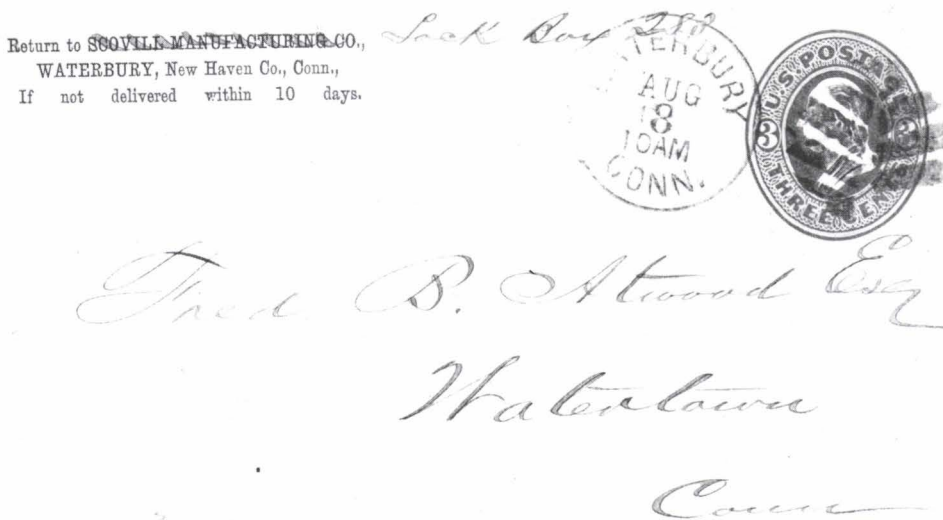 Return to SCOVILL MANUFACTURING CO., Lock Box 288
WATERBURY, New Haven Co., Conn.,
If not delivered within 10 days.
WATERBURY
AUG
18
10AM
CONN.
U.S. POSTAGE
3 3
THREE CENTS
Fred B. Atwood Esq
Watertown
Conn